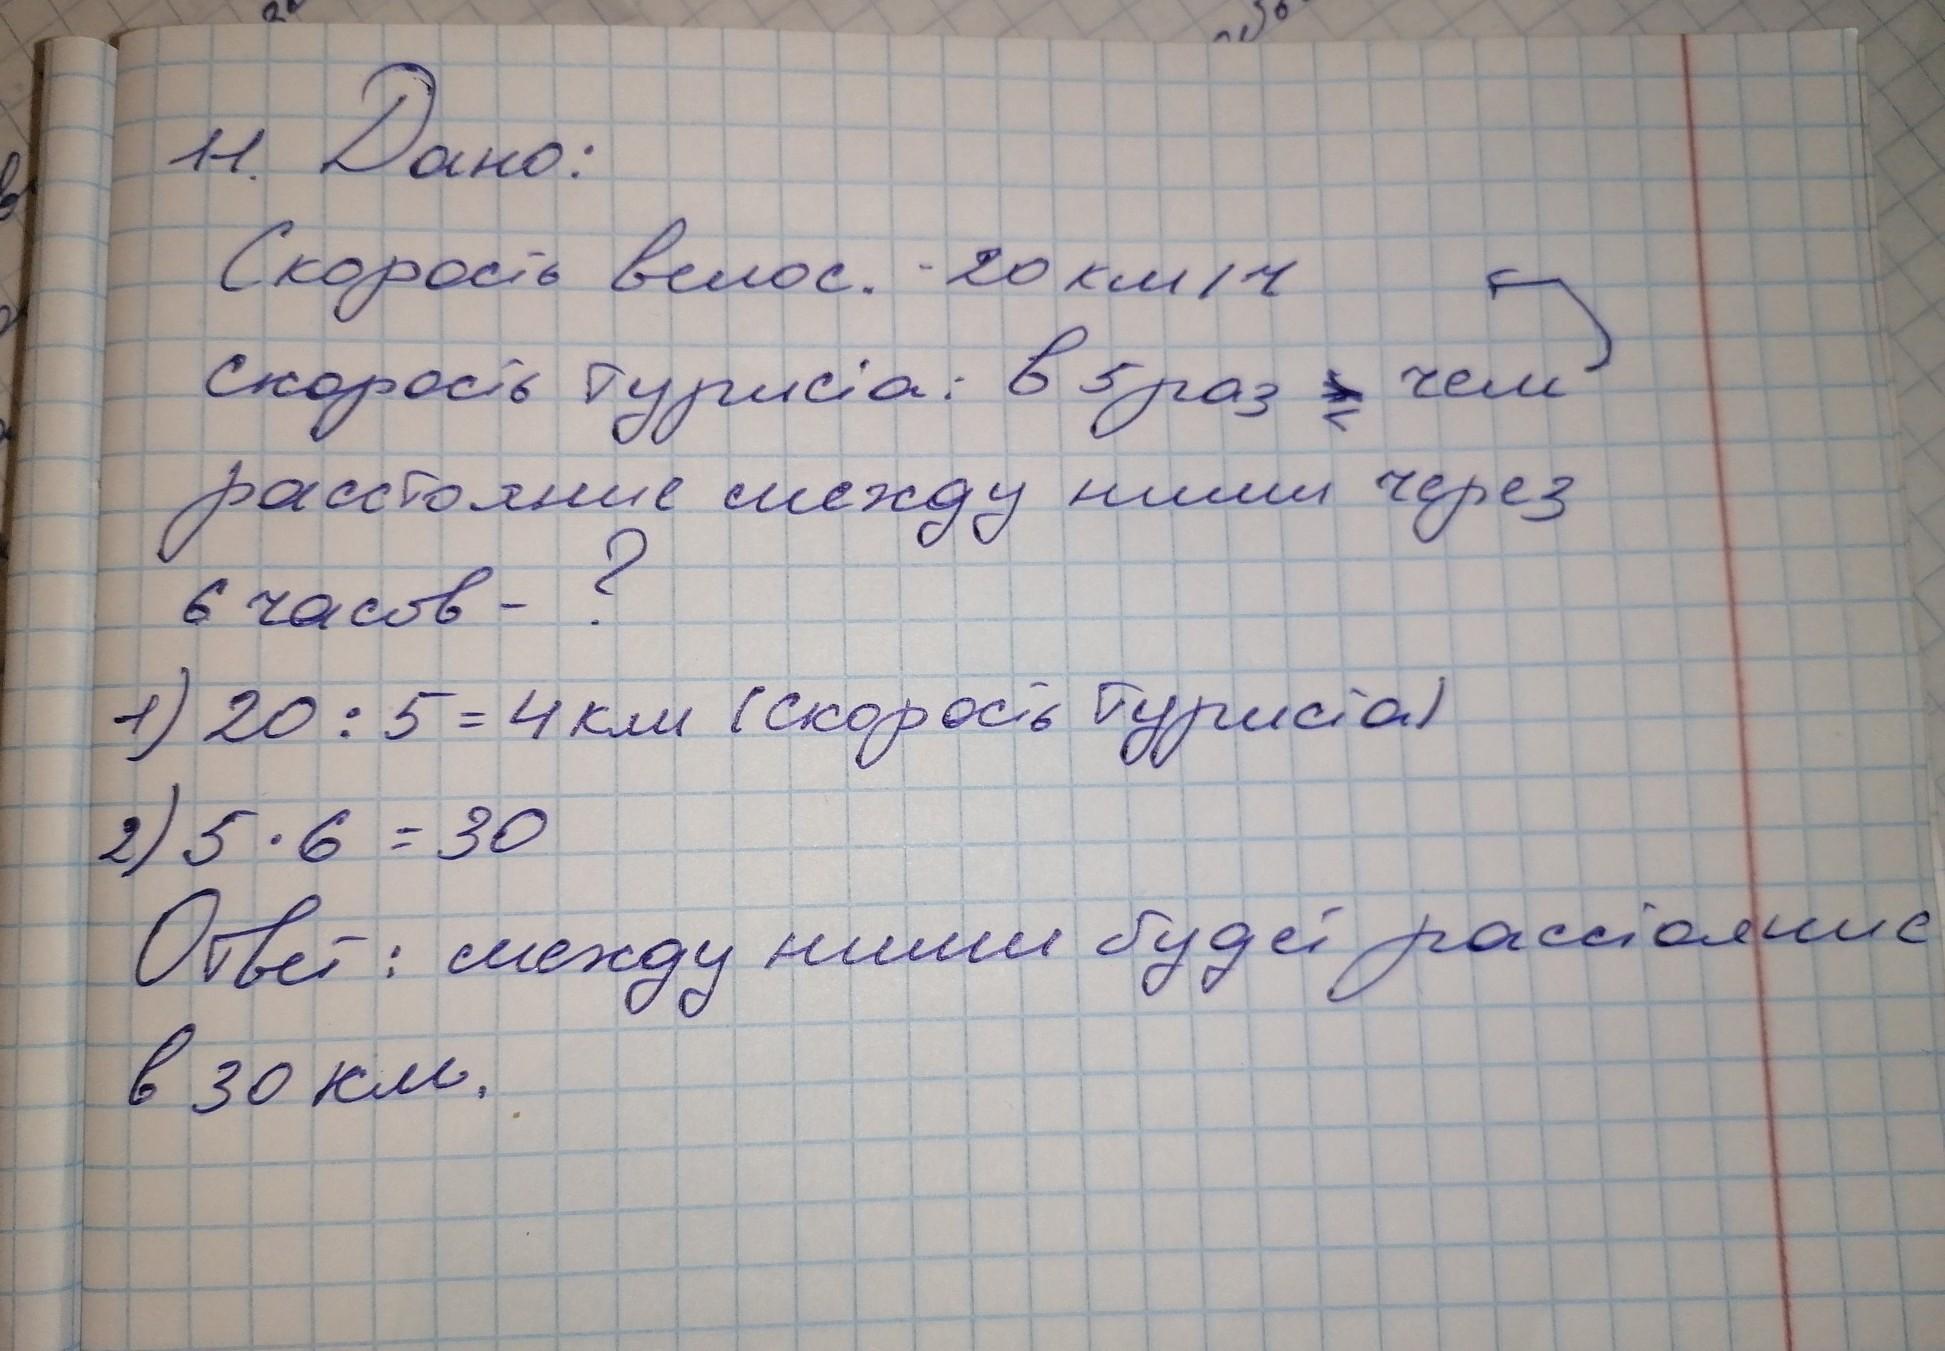 11. Дано:
Скорость велос. - 20 км/ч
скорость туриста: в 5 раз < чем
расстояние между ними через
6 часов - ?
1) 20 : 5 = 4 км (скорость туриста)
2) 5 · 6 = 30
Ответ: между ними будет расстояние
в 30 км.